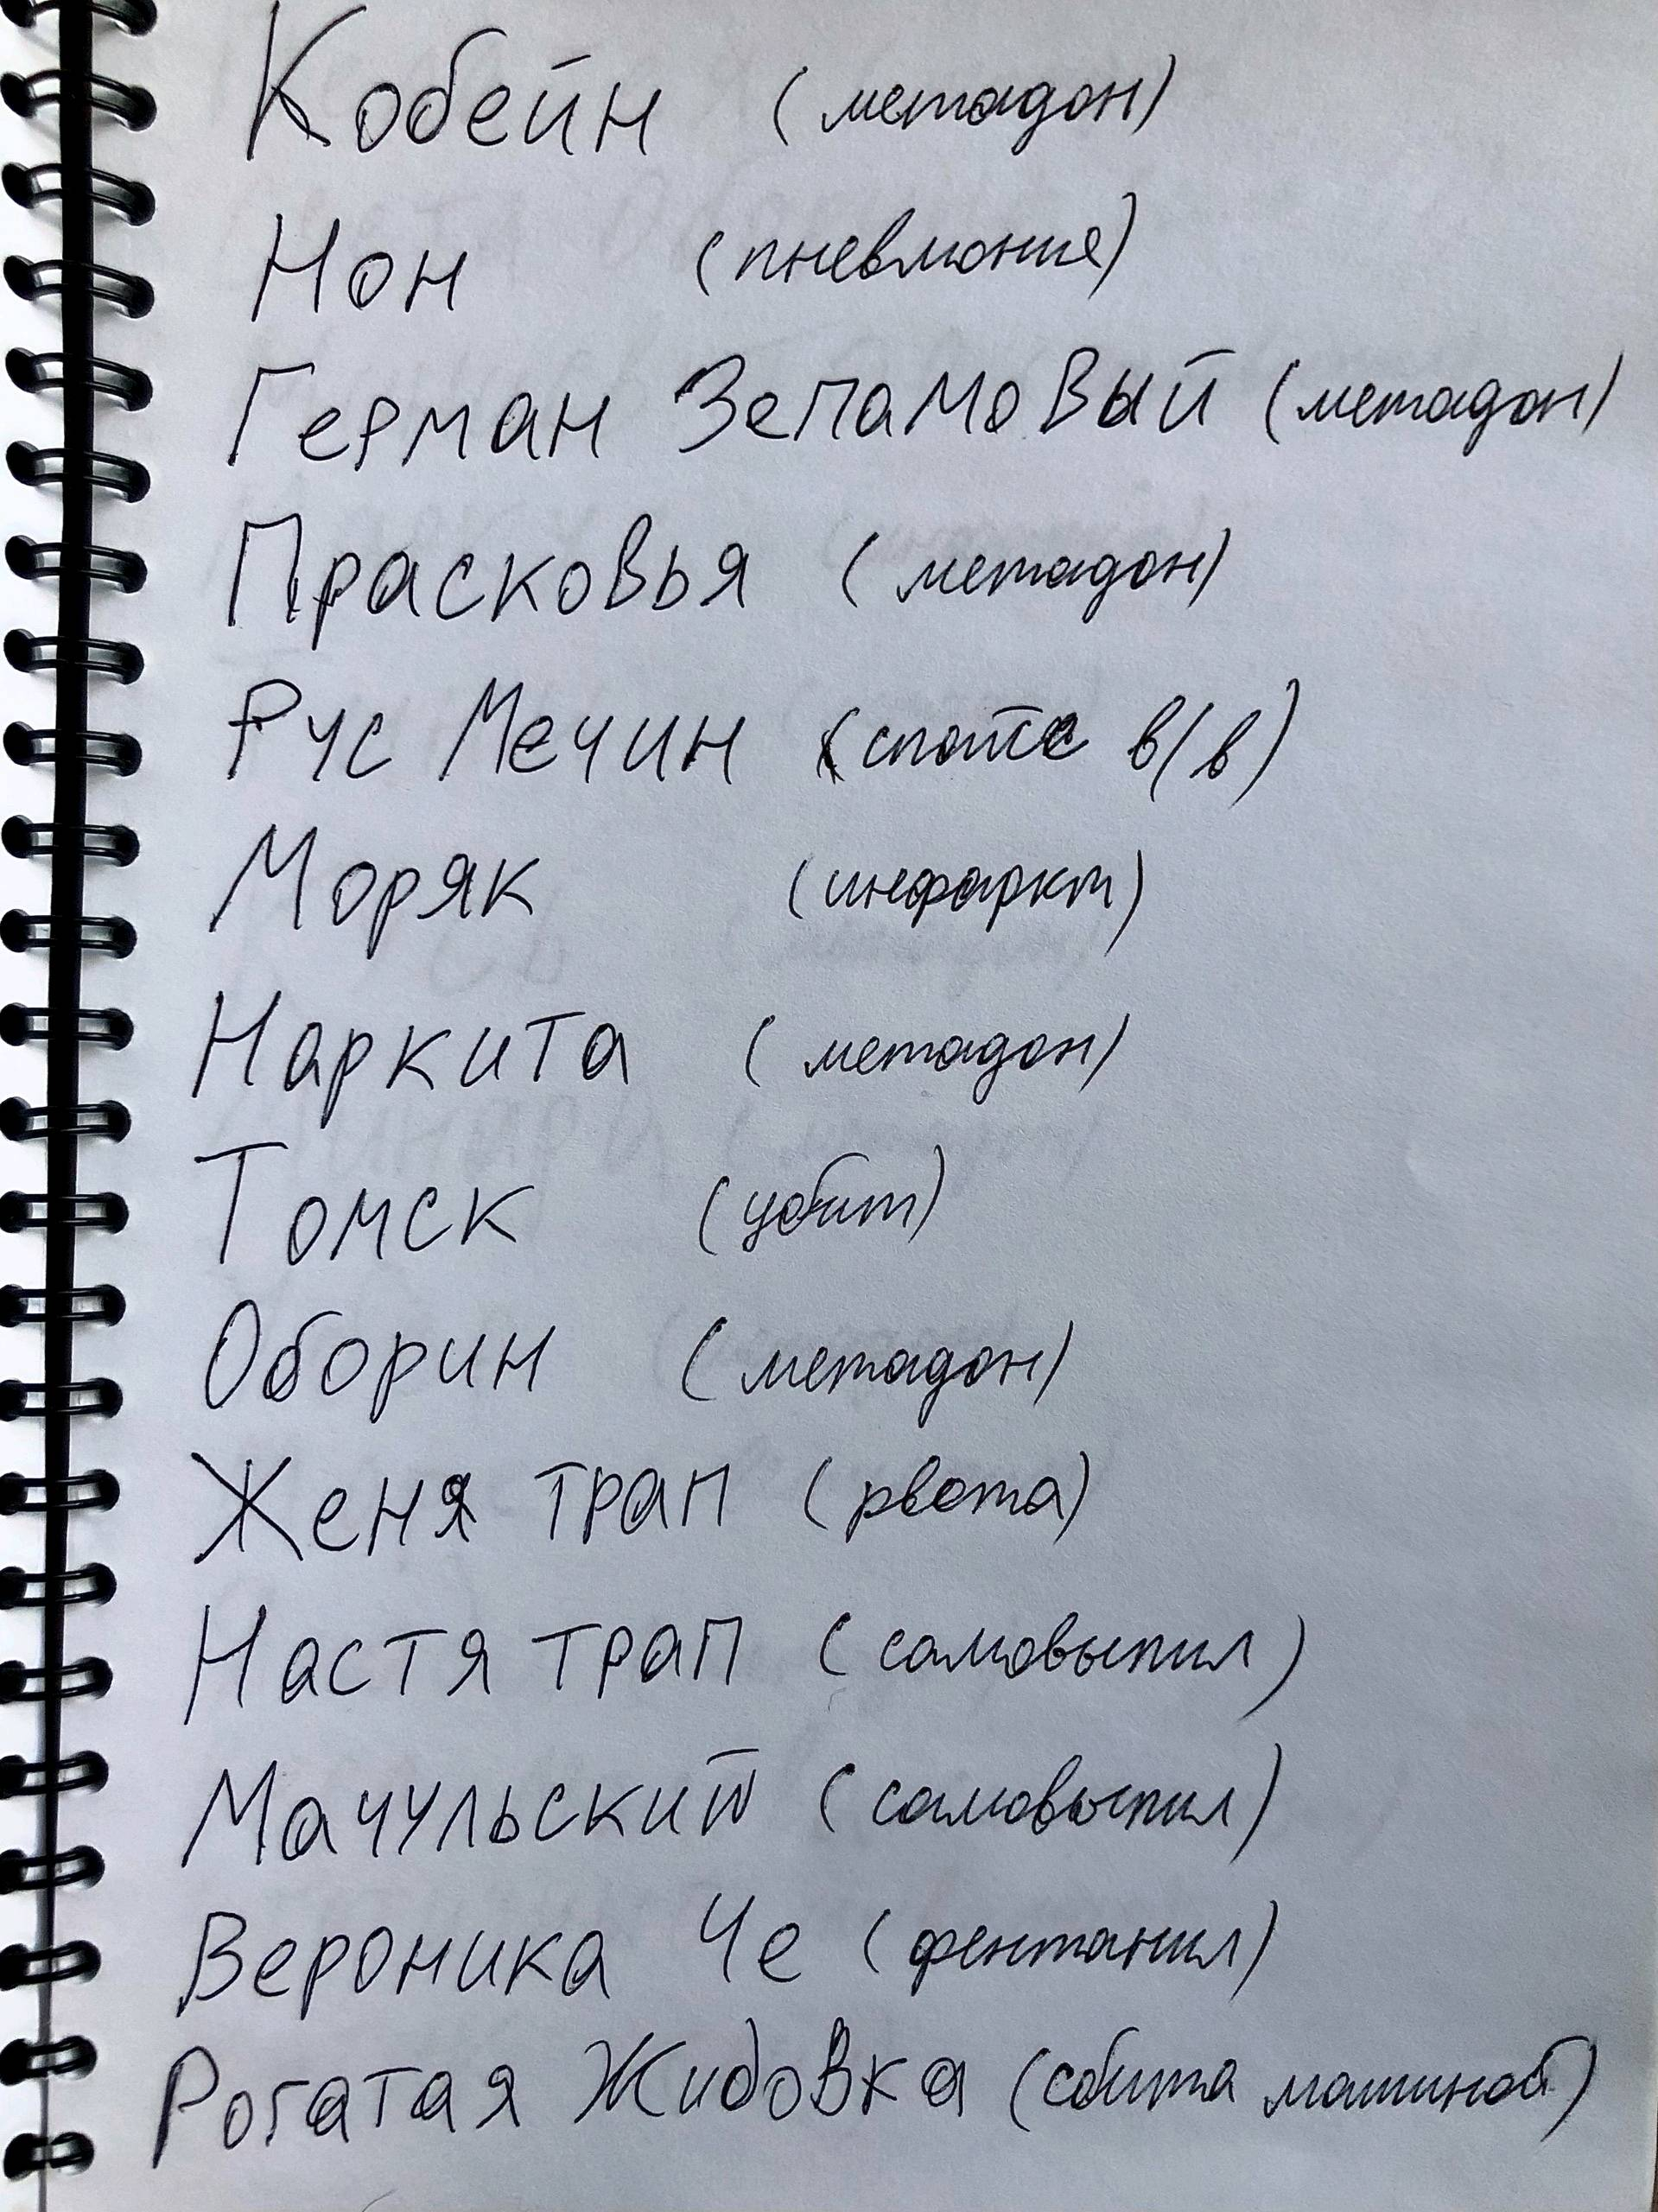 Кобейн (метадон)
Нон (пневмония)
Герман Зепамовый (метадон)
Прасковья (метадон)
Рус Мечин (спайс в/в)
Моряк (инфаркт)
Наркита (метадон)
Томск (убит)
Оборин (метадон)
Женя трап (рвота)
Настя трап (самовыпил)
Мачульский (самовыпил)
Вероника Че (фентанил)
Рогатая Жидовка (сбита машиной)